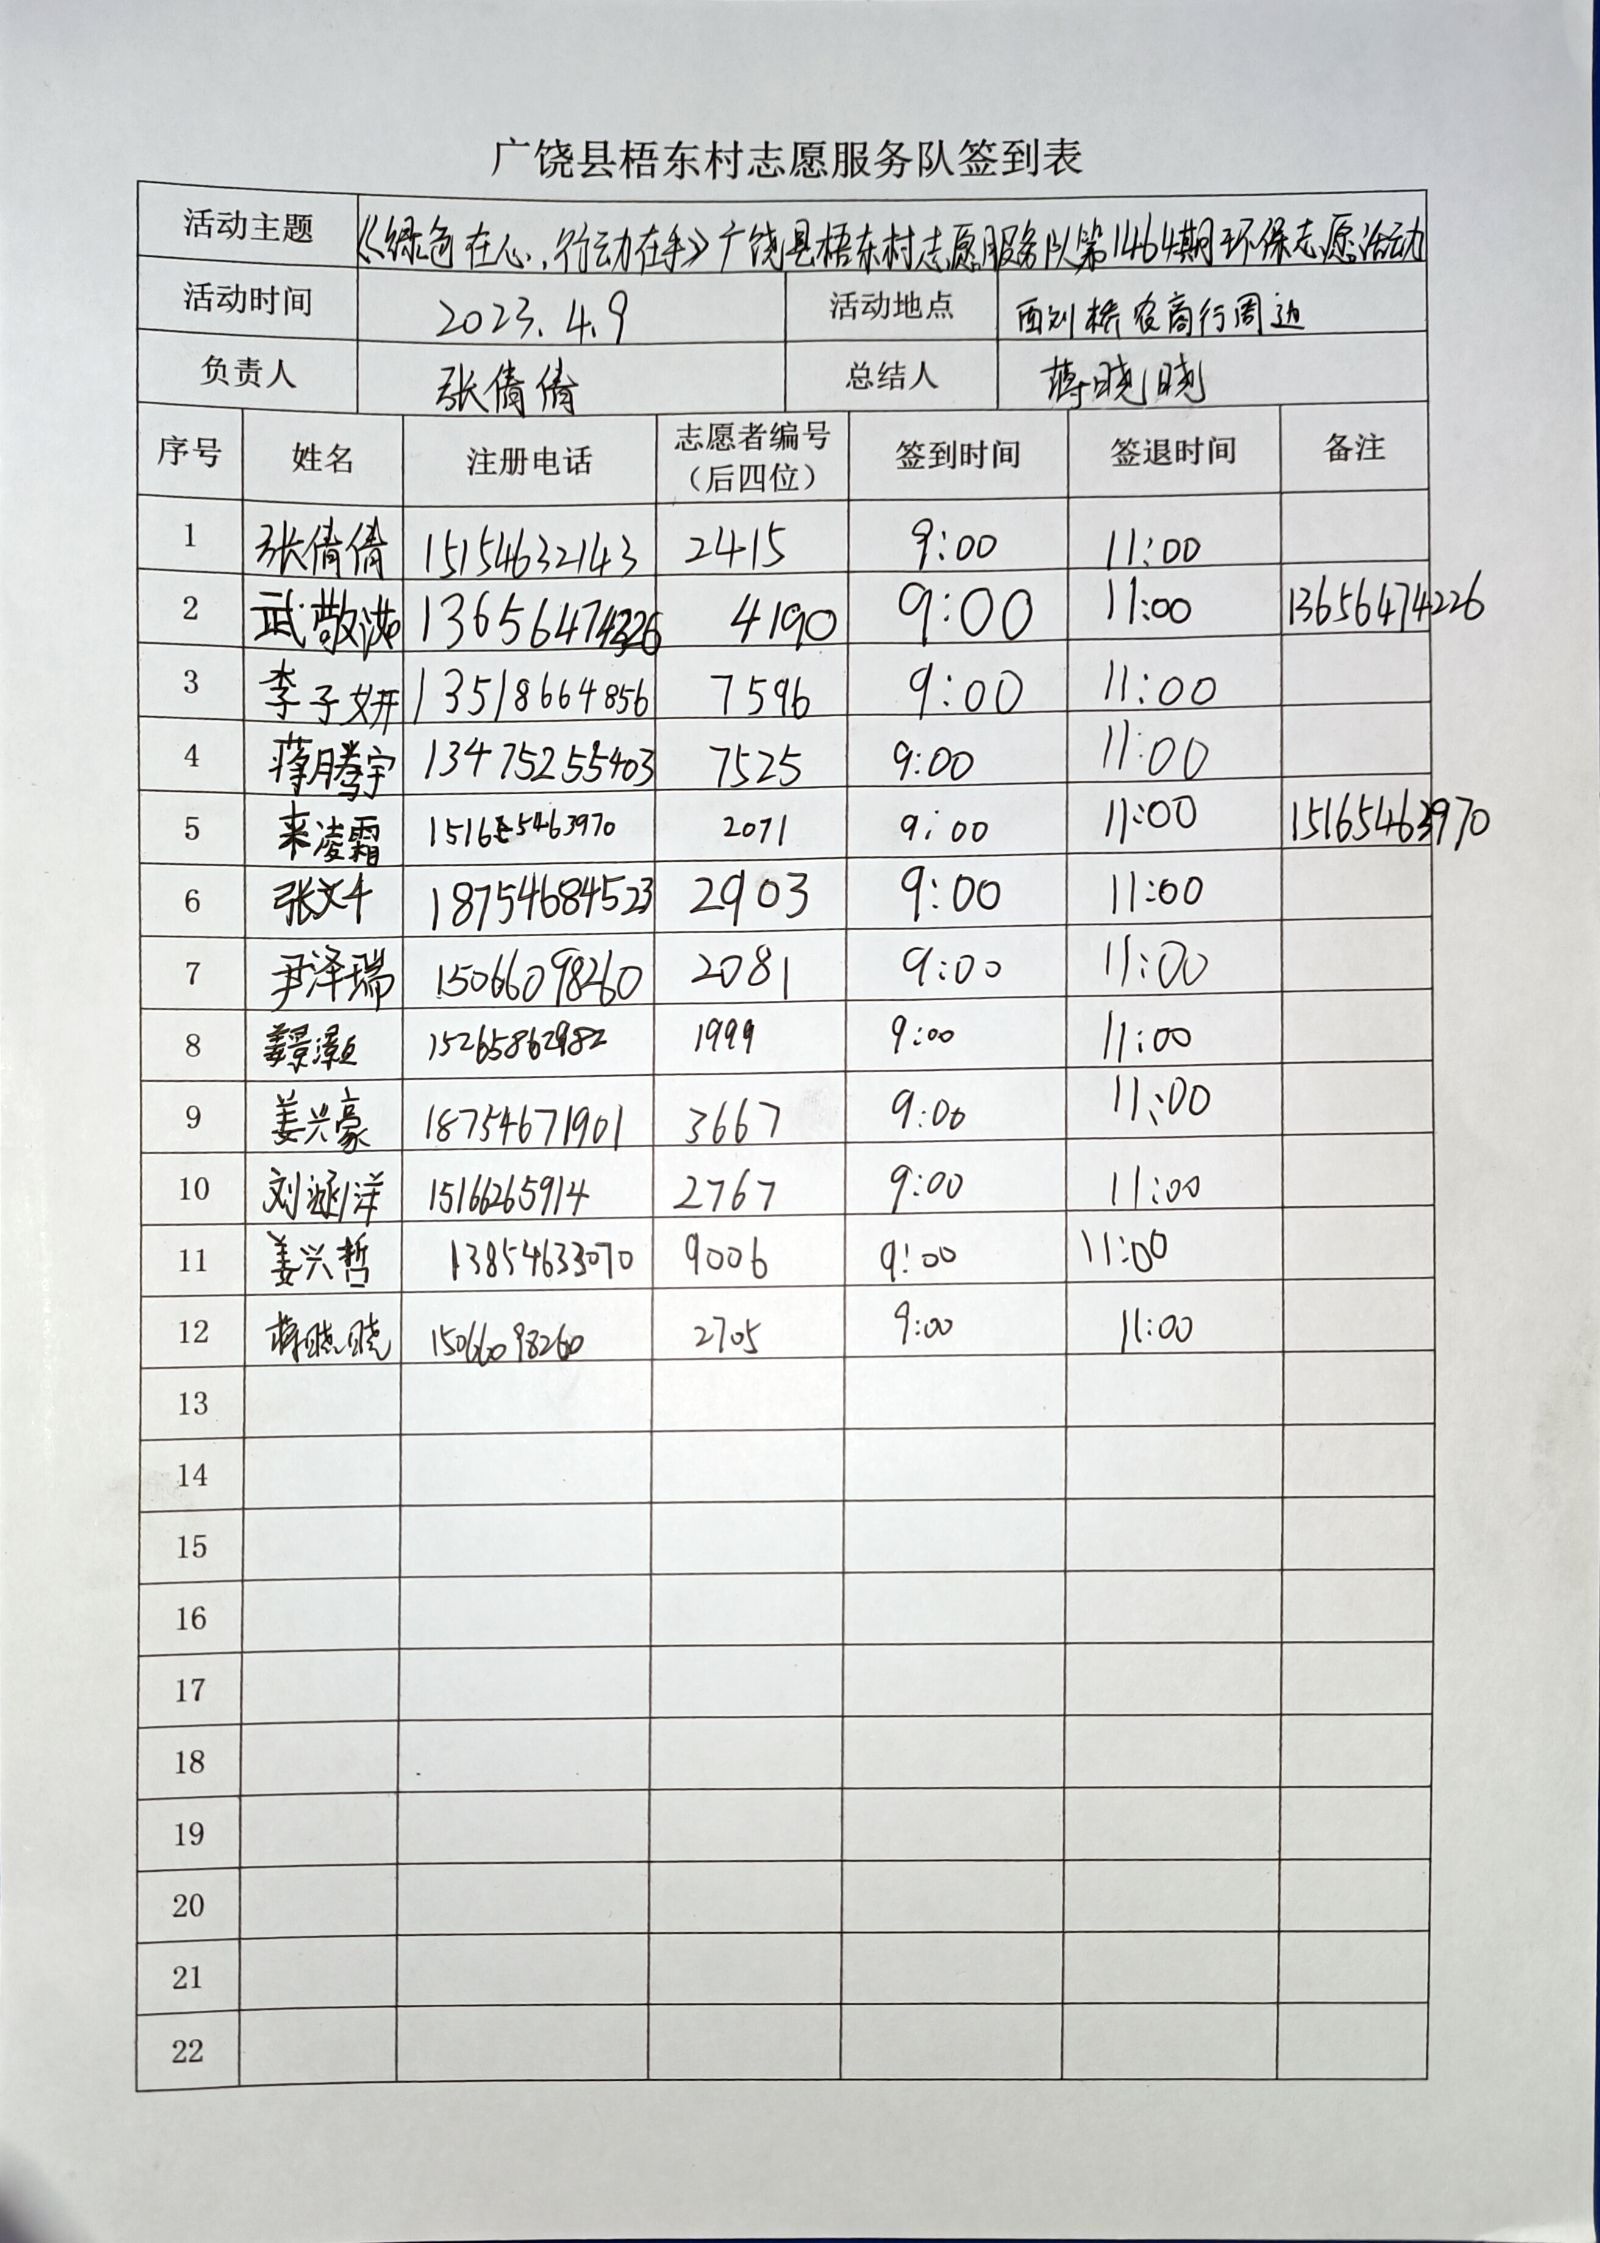 广饶县梧东村志愿服务队签到表
活动主题 《绿色在心，行动在手》广饶县梧东村志愿服务队第1464期环保志愿活动
活动时间 2023.4.9 活动地点 西刘桥农商行周边
负责人 张倩倩 总结人 蒋晓晓
序号 姓名 注册电话 志愿者编号（后四位） 签到时间 签退时间 备注
1 张倩倩 15154632143 2415 9:00 11:00
2 武敬 4190 9:00 11:00 13656474226
3 李子妍 13518664856 7596 9:00 11:00
4 蒋腾宇 13475255403 7525 9:00 11:00
5 来凌霜 15165463970 2071 9:00 11:00 15165463970
6 张文千 18754684523 2903 9:00 11:00
7 尹泽瑞 15066098260 2081 9:00 11:00
8 姜景灏 15265862982 1999 9:00 11:00
9 姜兴豪 18754671901 3667 9:00 11:00
10 刘涵洋 15166265914 2767 9:00 11:00
11 姜兴哲 13854633070 9006 9:00 11:00
12 蒋晓晓 15066098260 2705 9:00 11:00
13
14
15
16
17
18
19
20
21
22